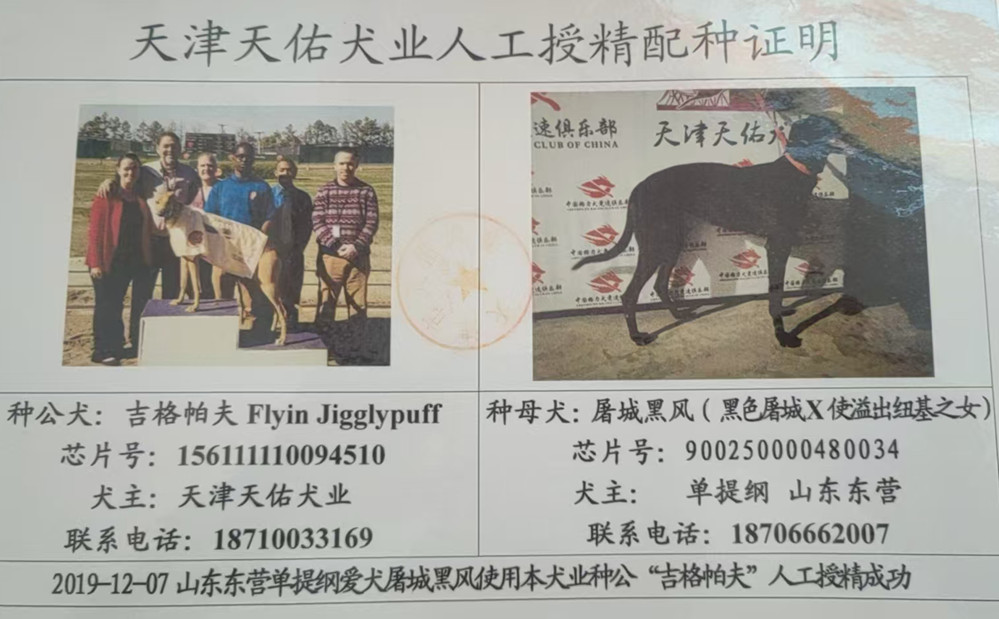 天津天佑犬业人工授精配种证明
速俱乐部
CLUB OF CHINA
天津天佑犬
种公犬：吉格帕夫 Flyin Jigglypuff
芯片号：156111110094510
犬主：天津天佑犬业
联系电话：18710033169
种母犬：屠城黑风（黑色屠城X使溢出纽基之女）
芯片号：900250000480034
犬主： 单提纲 山东东营
联系电话：18706662007
2019-12-07 山东东营单提纲爱犬屠城黑风使用本犬业种公“吉格帕夫”人工授精成功